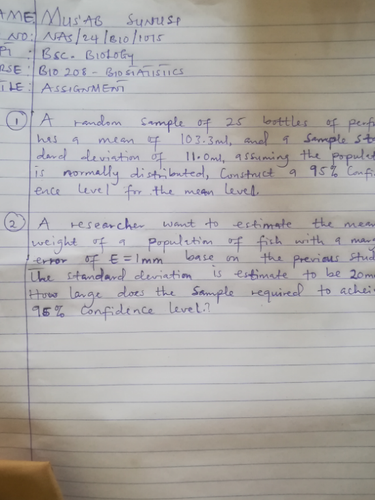 AME: MUS'AB SUNUSI
NO: NAS/24/BIO/1075
PT: BSC. BIOLOGY
RSE: BIO 208 - BIOSTATISTICS
TLE: ASSIGNMENT
① A random sample of 25 bottles of perfu
has a mean of 103.3ml, and a sample sta
dard deviation of 11.0ml, assuming the populat
is normally distributed, Construct a 95% Confi
ence level for the mean level.
② A researcher want to estimate the mean
weight of a population of fish with a mar
error of E = 1mm base on the previous stud
the standard deviation is estimate to be 20m
How large does the Sample required to achei
95% Confidence level?